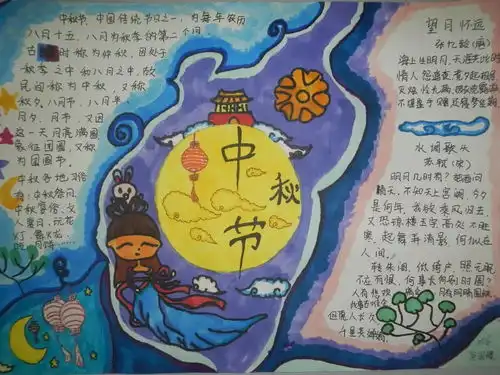 中秋节,中国传统节日之一,为每年农历
八月十五,八月为秋季的第二个
古 时称为仲秋,因处于
秋季之中和八月之中,故
民间称为中秋,又称
秋夕,八月节,八月半,
月夕,月节,又因
这一天月亮满圆
象征团圆,又称
为团圆节。
中秋各地习俗
中秋
节
望月怀远
张九龄(唐)
海上生明月,天涯共此时
情人怨遥夜,竟夕起相思
灭烛怜光满,披衣觉露滋
不堪盈手赠,还寝梦佳期
水调歌头
苏轼(宋)
明月几时有?把酒问
青天,不知天上宫阙,今夕
是何年,我欲乘风归去,
又恐琼楼玉宇,高处不胜
寒,起舞弄清影,何似在
人间。
转朱阁,低绮户,照无眠
不应有恨,何事长向别时圆?
人有悲欢离合,月有阴晴圆缺
此事古难全
但愿人长久
千里共婵娟。